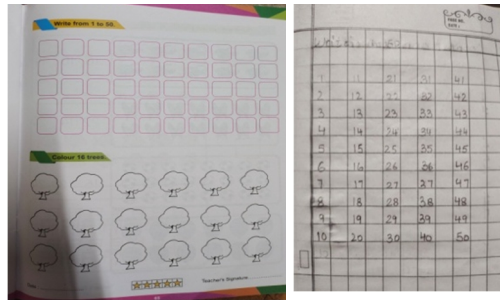 Write from 1 to 50.
Colour 16 trees.
Teacher's Signature
1 11 21 31 41
2 12 22 32 42
3 13 23 33 43
4 14 24 34 44
5 15 25 35 45
6 16 26 36 46
7 17 27 37 47
8 18 28 38 48
9 19 29 39 49
10 20 30 40 50